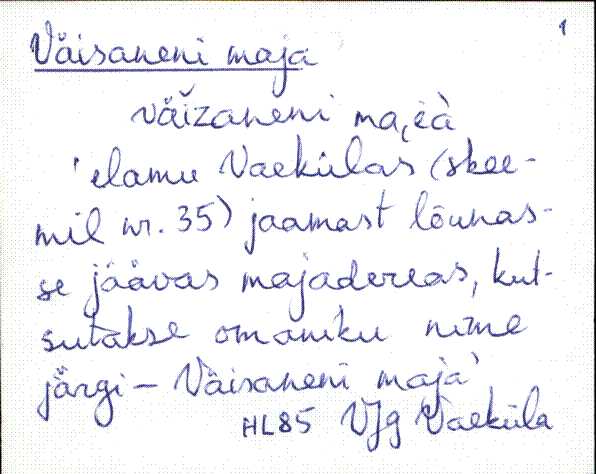 1
Väisaneni maja
väìzaneni ma,i̯à
'elamu Vaekülas (skee-
mil nr. 35) jaamast lõunas-
se jäävas majadereas, kut-
sutakse omaniku nime
järgi – Väisaneni maja'
HL85 VJg Vaeküla